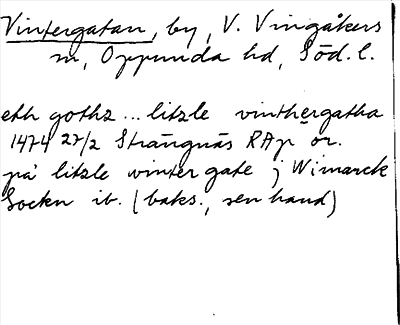 Vintergatan, by, V. Vingåkers
sn, Oppunda hd, Söd. l.
eth gothz ... litzle vinthergatha
1474 27/2 Strängnäs RAp or.
på litzle winter gate j Wimarck
Sockn ib. (baks., sen hand)